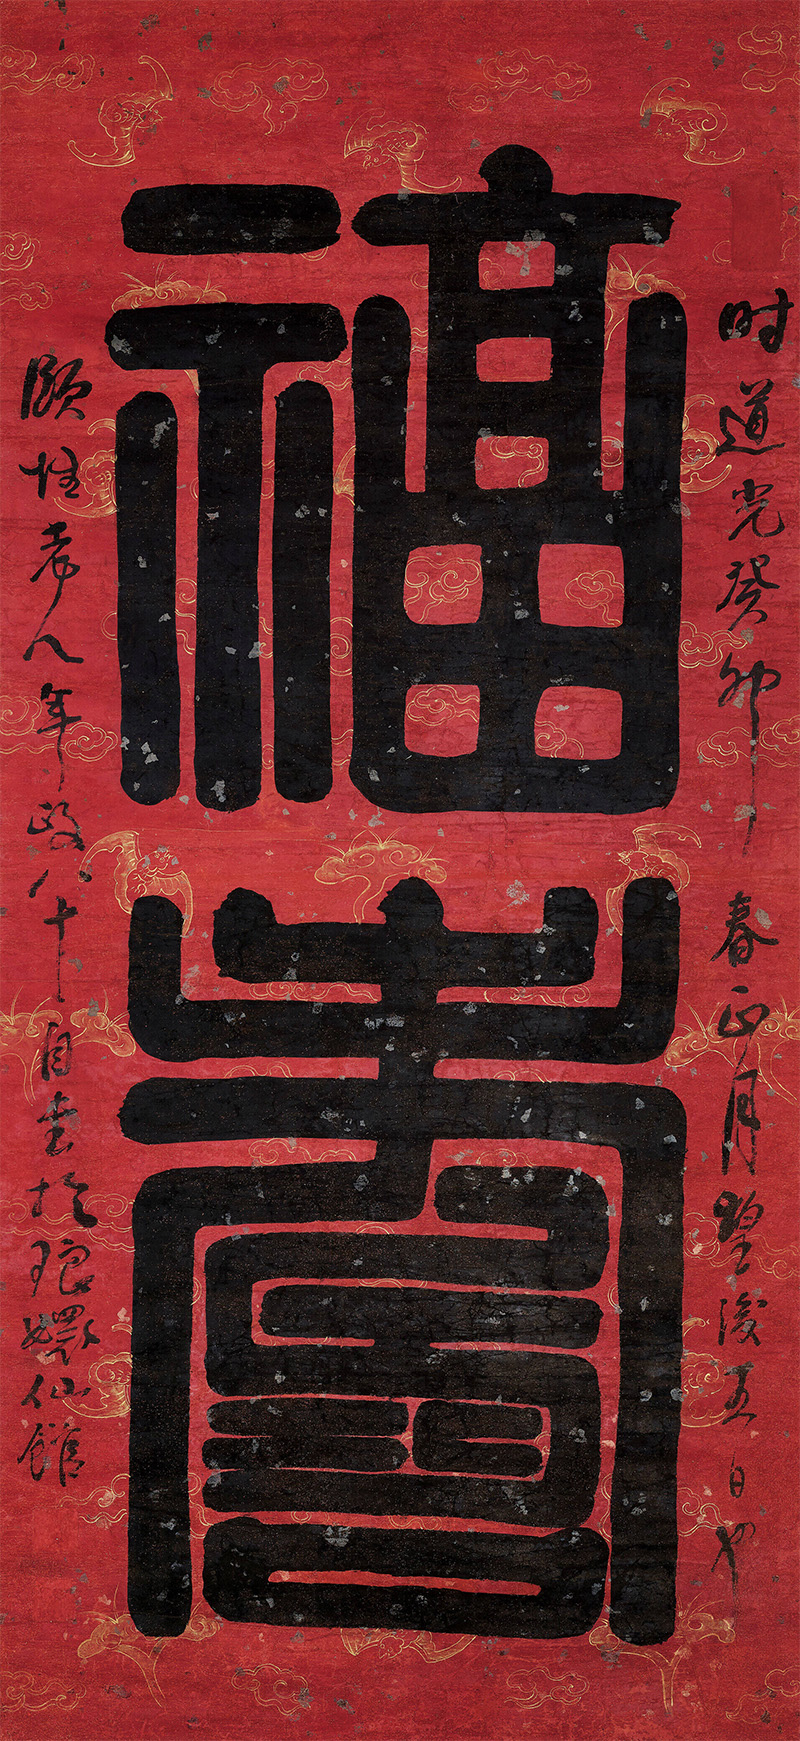 福壽
时道光癸卯春正月望後五日也
頤性老人年政八十自書於琅嬛仙館